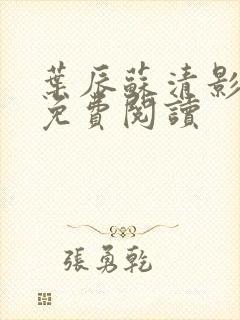 葉辰蘇清影
免費閱讀
張勇乾